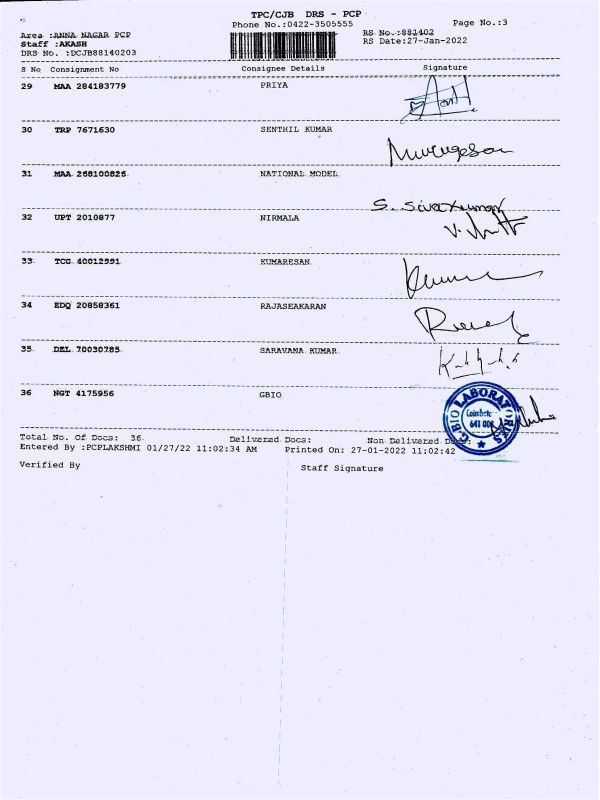 TPC/CJB DRS - PCP
Phone No.:0422-3505555
Page No.:3
Area :ANNA NAGAR PCP
RS No.:881402
Staff :AKASH
RS Date:27-Jan-2022
DRS No. :DCJB88140203
S No Consignment No Consignee Details Signature
29 MAA 284183779 PRIYA
30 TRP 7671630 SENTHIL KUMAR
Murugesan
31 MAA 268100826 NATIONAL MODEL
S. Sivakumar
32 UPT 2010877 NIRMALA
33 TCG 40012991 KUMARESAN
34 EDQ 20858361 RAJASEAKARAN
35 DEL 70030785 SARAVANA KUMAR
36 NGT 4175956 GBIO
GBIO LABORATORIES
Coimbatore
641
Total No. Of Docs: 36 Delivered Docs: Non Delivered Docs:
Entered By :PCPLAKSHMI 01/27/22 11:02:34 AM Printed On: 27-01-2022 11:02:42
Verified By Staff Signature